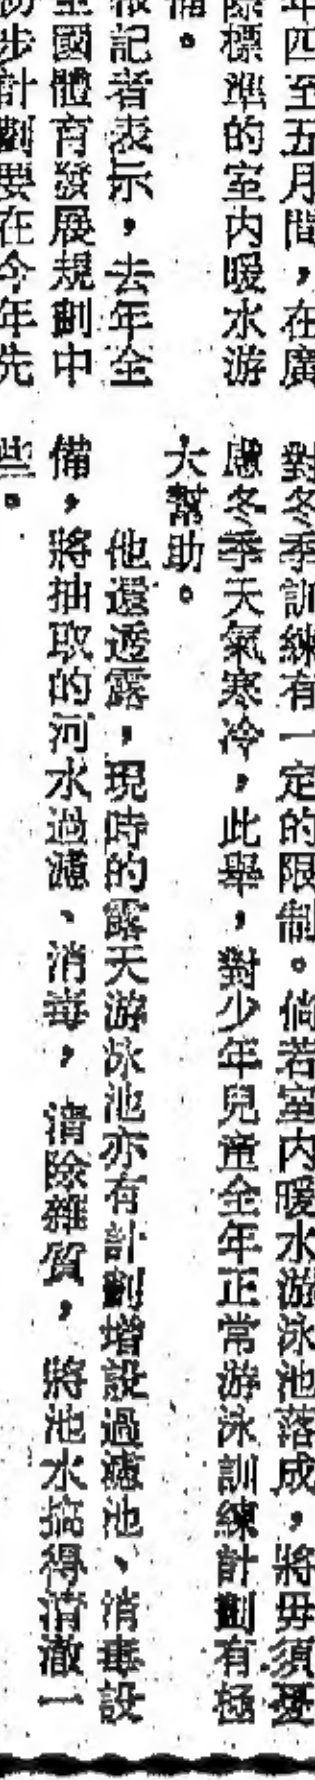 年四至五月間，在廣
際標準的室內暖水游
備。
報記者表示，去年全
全國體育發展規劃中
初步計劃要在今年先
對冬季訓練有一定的限制。倘若室內暖水游泳池落成，將毋須憂
慮冬季天氣寒冷，此舉，對少年兒童全年正常游泳訓練計劃有極
大幫助。
他還透露，現時的露天游泳池亦有計劃增設過濾池、消毒設
備，將抽取的河水過濾、消毒，清除雜質，將池水搞得清澈一
些。